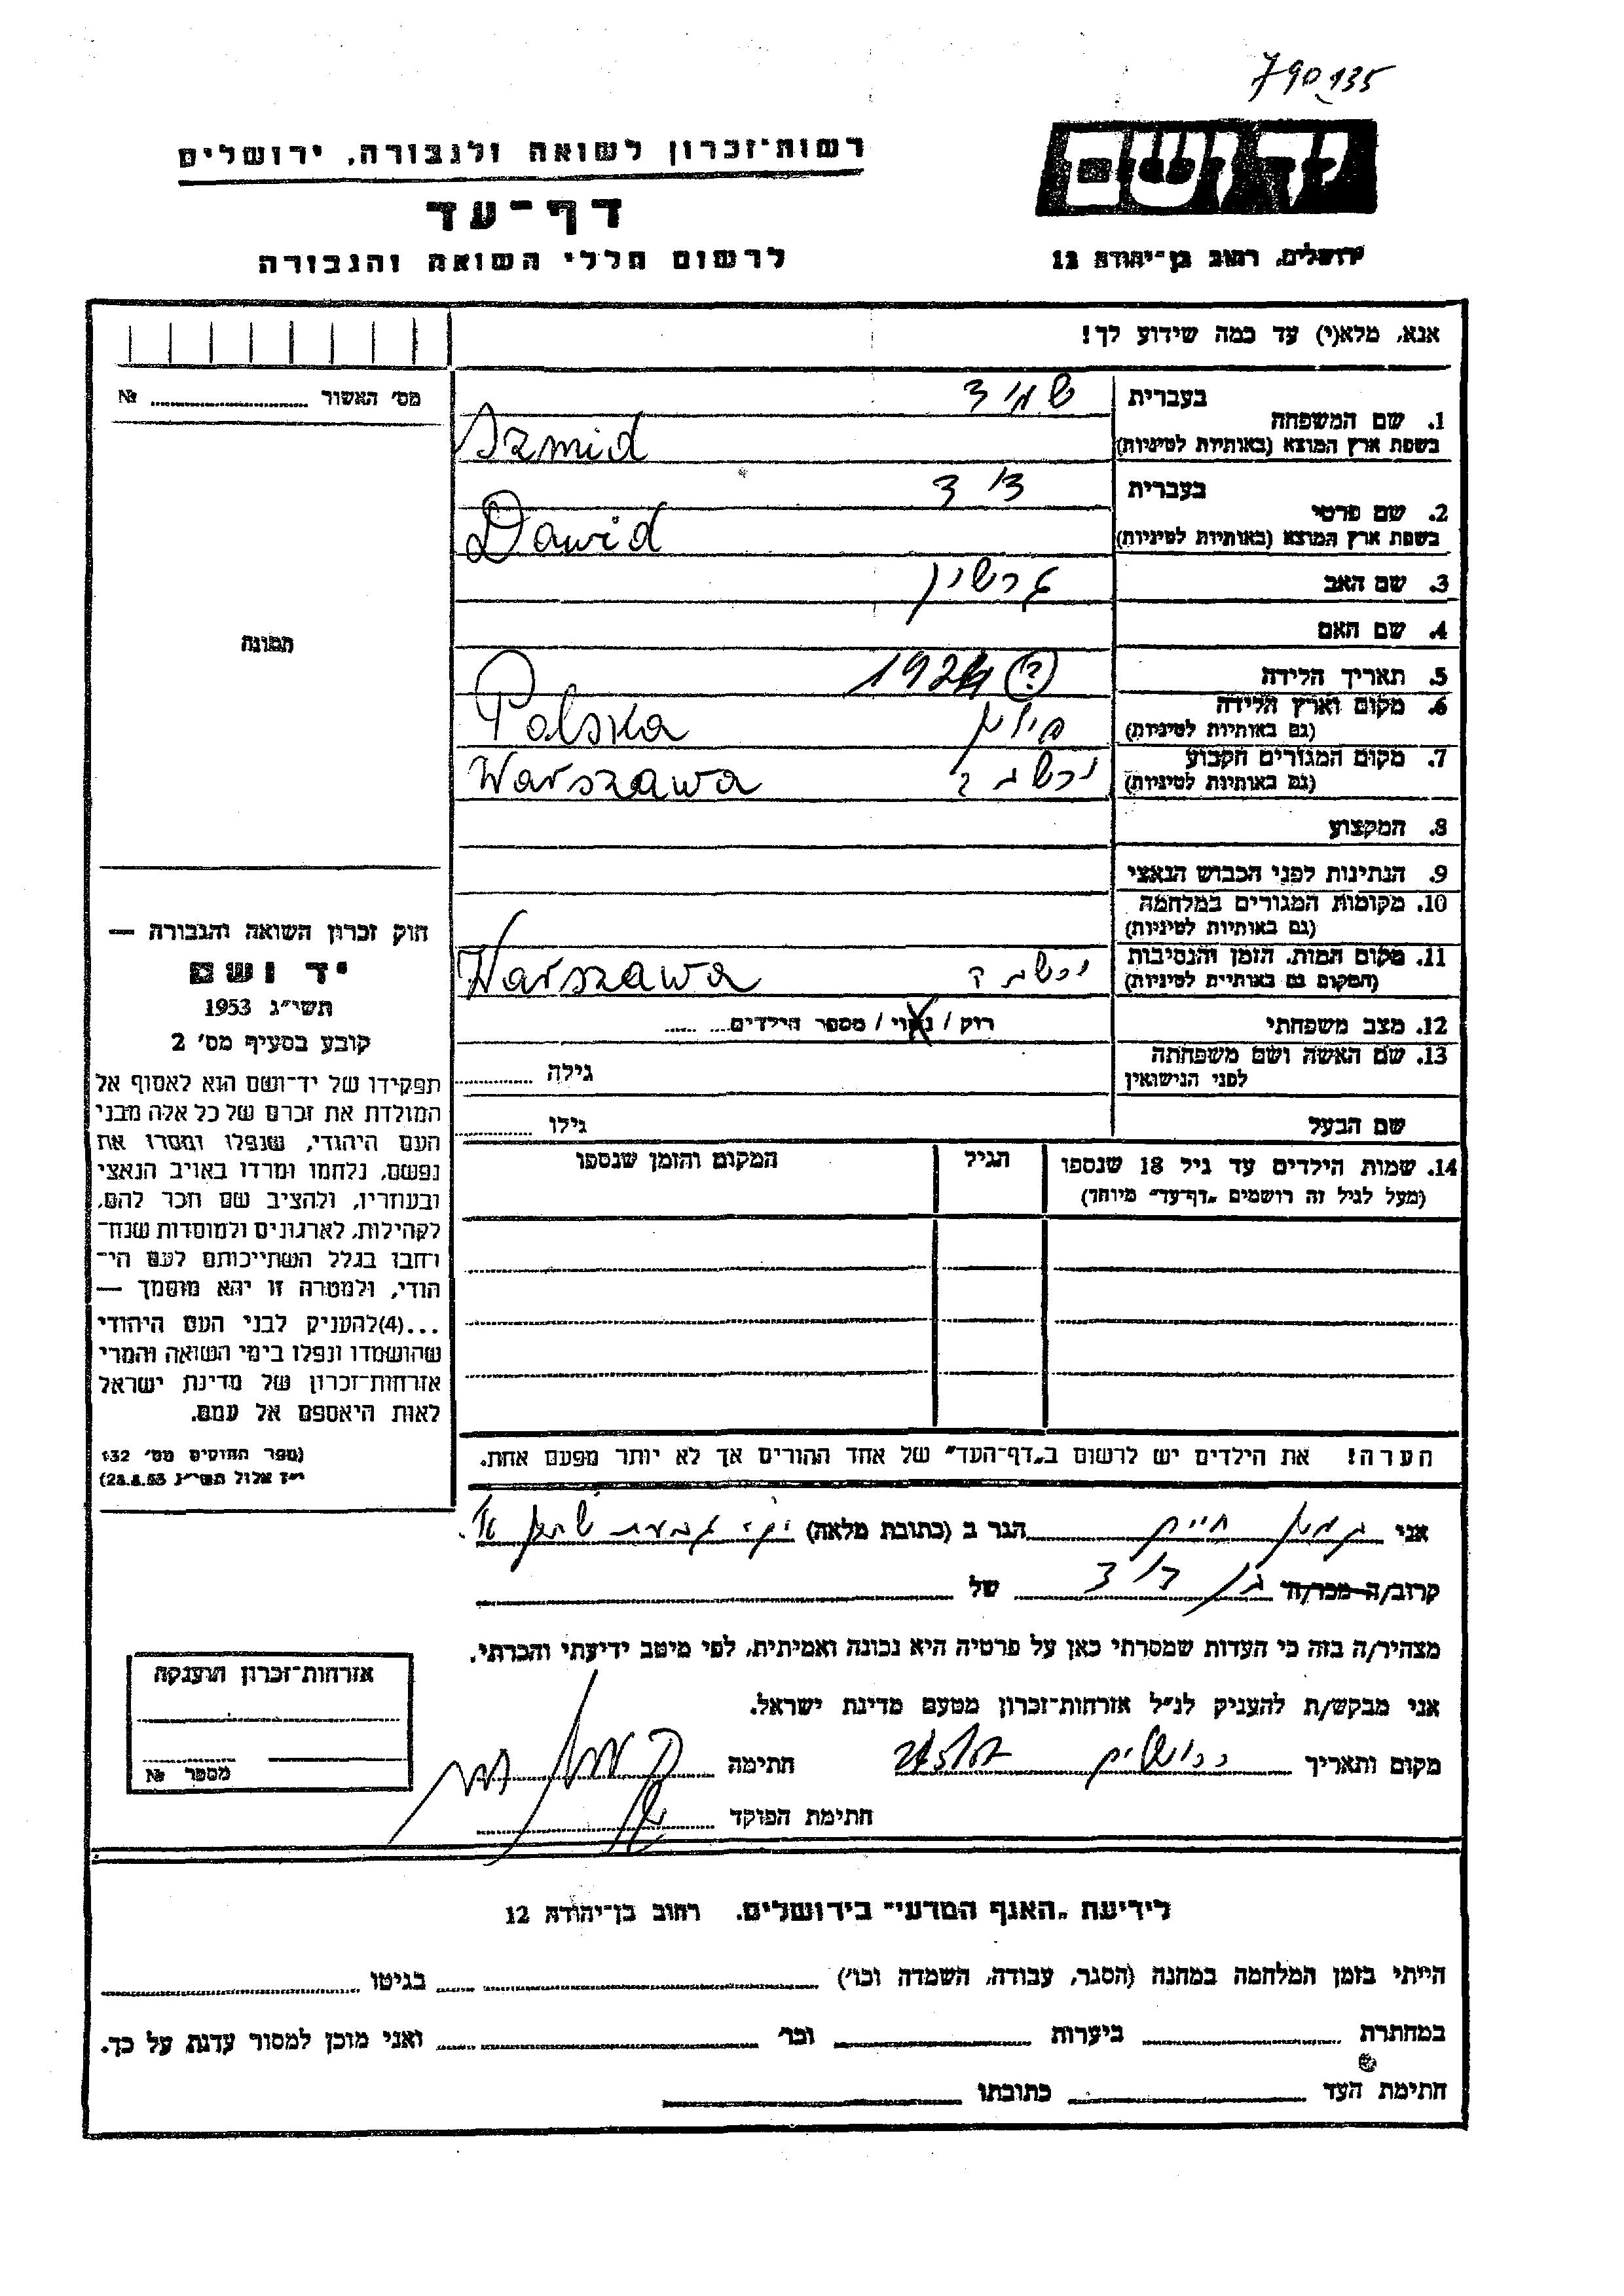 790135
רשות־זכרון לשואה ולגבורה, ירושלים
יד ושם
דף־עד
לרשום חללי השואה והגבורה
ירושלים, רחוב בן־יהודה 12
אנא, מלא(י) עד כמה שידוע לך!
מס׳ האשור № 
1. שם המשפחה
בעברית שמיד
בשפת ארץ המוצא (באותיות לטיניות) Szmid
2. שם פרטי
בעברית דוד
בשפת ארץ המוצא (באותיות לטיניות) Dawid
3. שם האב גרשון
4. שם האם
תמונה
5. תאריך הלידה 1924 (?)
6. מקום וארץ הלידה
(גם באותיות לטיניות) פולין Polska
7. מקום המגורים הקבוע
(גם באותיות לטיניות) ורשבה Warszawa
8. המקצוע
9. הנתינות לפני הכבוש הנאצי
10. מקומות המגורים במלחמה
(גם באותיות לטיניות)
11. מקום המות, הזמן והנסיבות
(המקום גם באותיות לטיניות) ורשבה Warszawa
12. מצב משפחתי רווק / נשוי / מספר הילדים
13. שם האשה ושם משפחתה
לפני הנישואין גילה
שם הבעל גילו
14. שמות הילדים עד גיל 18 שנספו
(מעל לגיל זה רושמים „דף־עד״ מיוחד)
הגיל
המקום והזמן שנספו
הערה! את הילדים יש לרשום ב„דף־העד״ של אחד ההורים אך לא יותר מפעם אחת.
חוק זכרון השואה והגבורה —
יד ושם
תשי״ג 1953
קובע בסעיף מס׳ 2
תפקידו של יד־ושם הוא לאסוף אל
המולדת את זכרם של כל אלה מבני
העם היהודי, שנפלו ומסרו את
נפשם, נלחמו ומרדו באויב הנאצי
ובעוזריו, ולהציב שם וזכר להם,
לקהילות, לארגונים ולמוסדות שנח־
רחבו בגלל השתייכותם לעם הי־
הודי, ולמטרה זו יהא מוסמך —
...(4)להעניק לבני העם היהודי
שהושמדו ונפלו בימי השואה והמרי
אזרחות־זכרון של מדינת ישראל
לאות היאספם אל עמם.
(ספר החוקים מס׳ 132
י״ז אלול תשי״ג 28.8.53)
אני חיים הגר ב (כתובת מלאה) גבעת
קרוב/ה מכר/ה בן דוד של
מצהיר/ה בזה כי העדות שמסרתי כאן על פרטיה היא נכונה ואמיתית, לפי מיטב ידיעתי והכרתי.
אני מבקש/ת להעניק לנ״ל אזרחות־זכרון מטעם מדינת ישראל.
מקום ותאריך ירושלים חתימה
חתימת הפוקד
אזרחות־זכרון הוענקה
מספר №
לידיעת „האגף המדעי״ בירושלים, רחוב בן־יהודה 12
הייתי בזמן המלחמה במחנה (הסגר, עבודה, השמדה וכו׳) בגיטו
במחתרת ביערות וכו׳ ואני מוכן למסור עדות על כך.
חתימת העד כתובתו